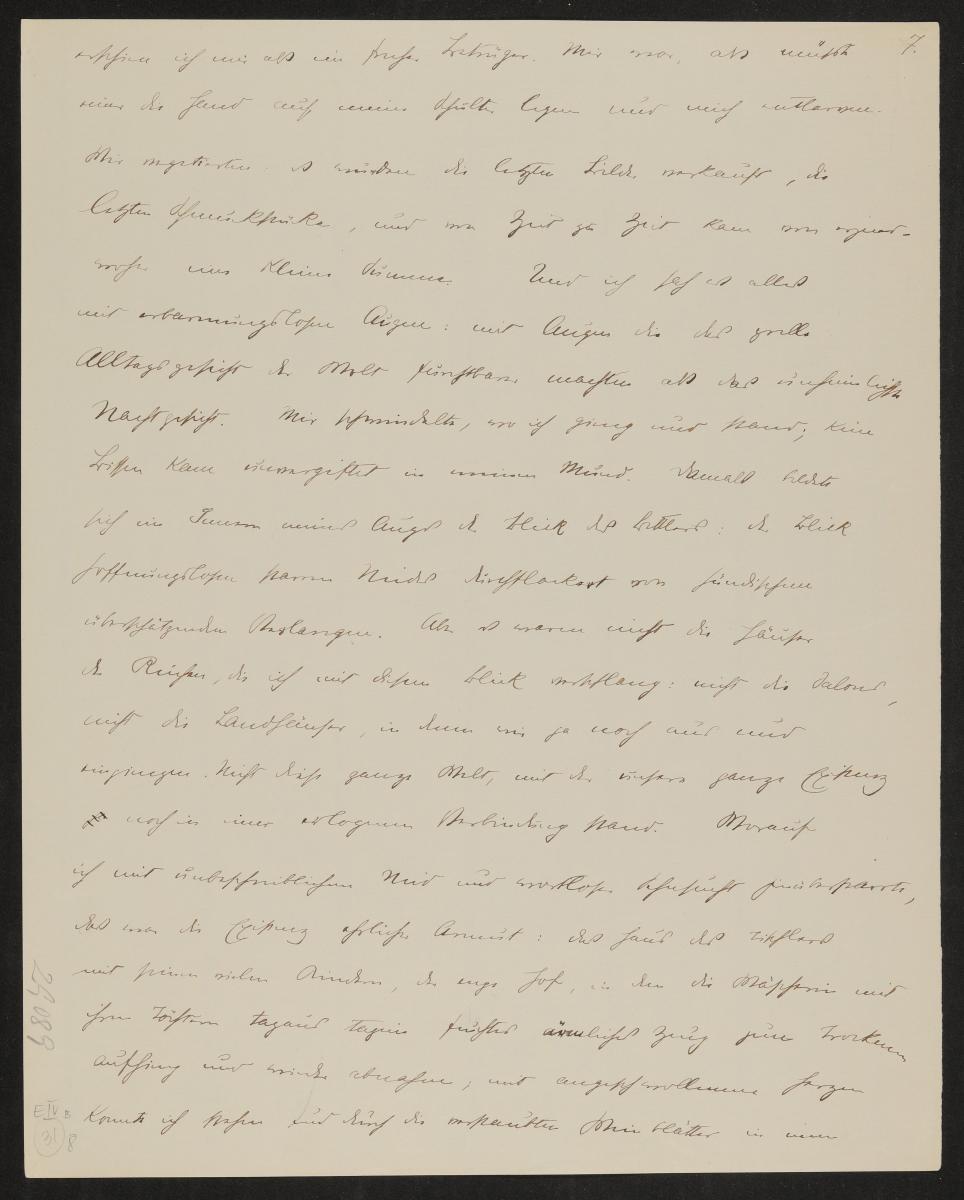 7.
erschien ich mir als ein frecher Betrüger. Mir war, als müßte
einer die Hand auf meine Schulter legen und mich entlarven.
Wir vegetierten. es wurden die letzten Bilder verkauft, die
letzten Schmuckstücke, und von Zeit zu Zeit kam von irgend-
woher eine kleine Summe. Und ich sah es alles
mit erbarmungslosen Augen: mit Augen die das grelle
Alltagsgesicht der Welt furchtbarer machten als das unheimlichste
Nachtgesicht. Mir schwindelte, wo ich ging und stand; kein
Bissen kam unvergiftet in meinen Mund. Damals bildete
sich im Innern meines Auges der Blick des Bettlers: der Blick
hoffnungslosen starren Neides durchflackert von hündischem
überschätzendem Verlangen. Aber es waren nicht die Häuser
der Reichen, die ich mit diesem Blick verschlang: nicht die Salons,
nicht die Landhäuser, in denen wir ja noch aus und
eingingen. Nicht diese ganze Welt, mit der unsere ganze Existenz
noch in einer erlogenen Verbindung stand. Worauf
ich mit unbeschreiblichem Neid und wortloser Sehnsucht hinüberstarrte,
das war die Existenz ehrlicher Armut: das Haus des Tischlers
mit seinen vielen Kindern, der enge Hof, in dem die Wäscherin mit
ihren Töchtern tagaus tagein feuchtes ärmliches Zeug zum Trocknen
aufhing und wieder abnahm; mit angeschwollenem Herzen
konnte ich stehen und durch die verstaubten Weinblätter in einen
68092
E IV B
31
8